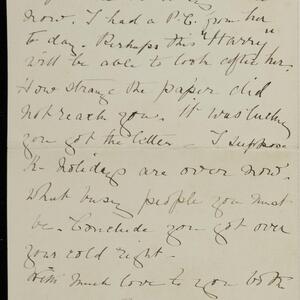 now. I had a P.C. from her
to day. Perhaps this "Harry"
will be able to look after her.
How strange the paper did
not reach you. It was lucky
you got the letter. I suppose
Holidays are over now.
What busy people you must
be. Conclude you got over
your cold right.
With much love to you both